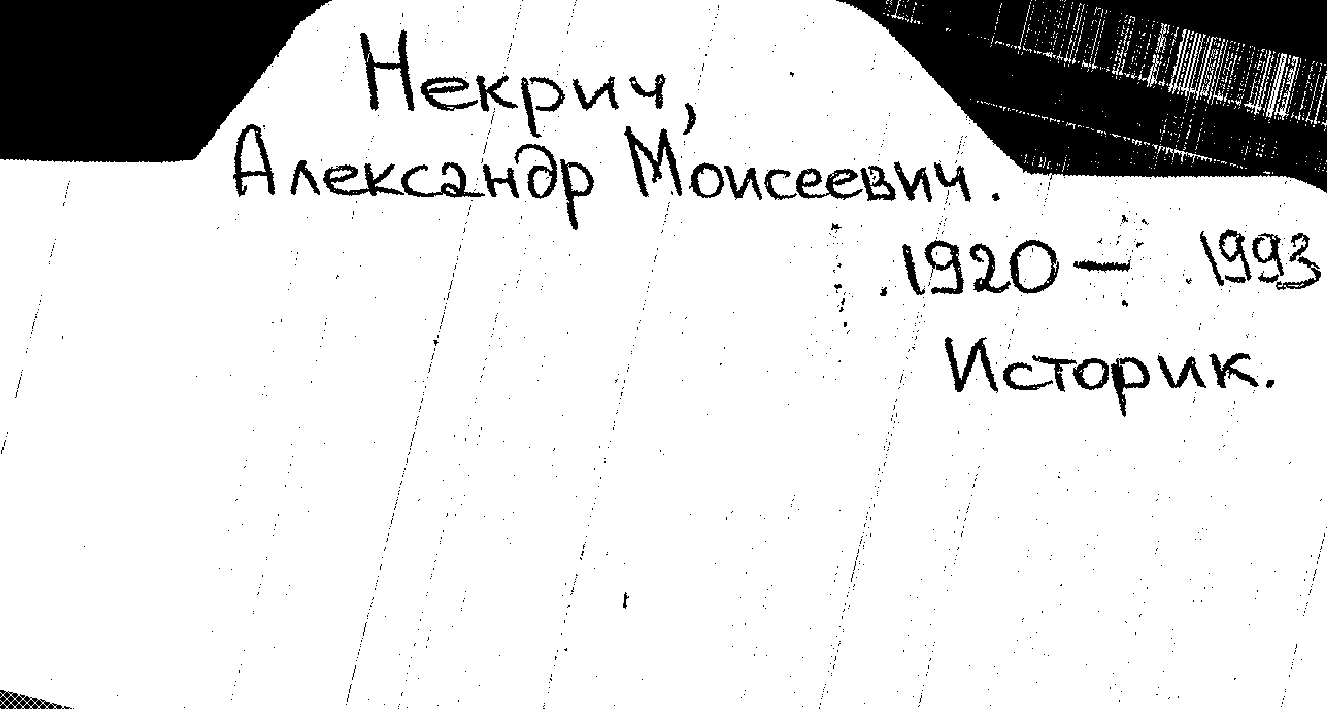 Некрич,
Александр Моисеевич.
1920 — 1993
Историк.